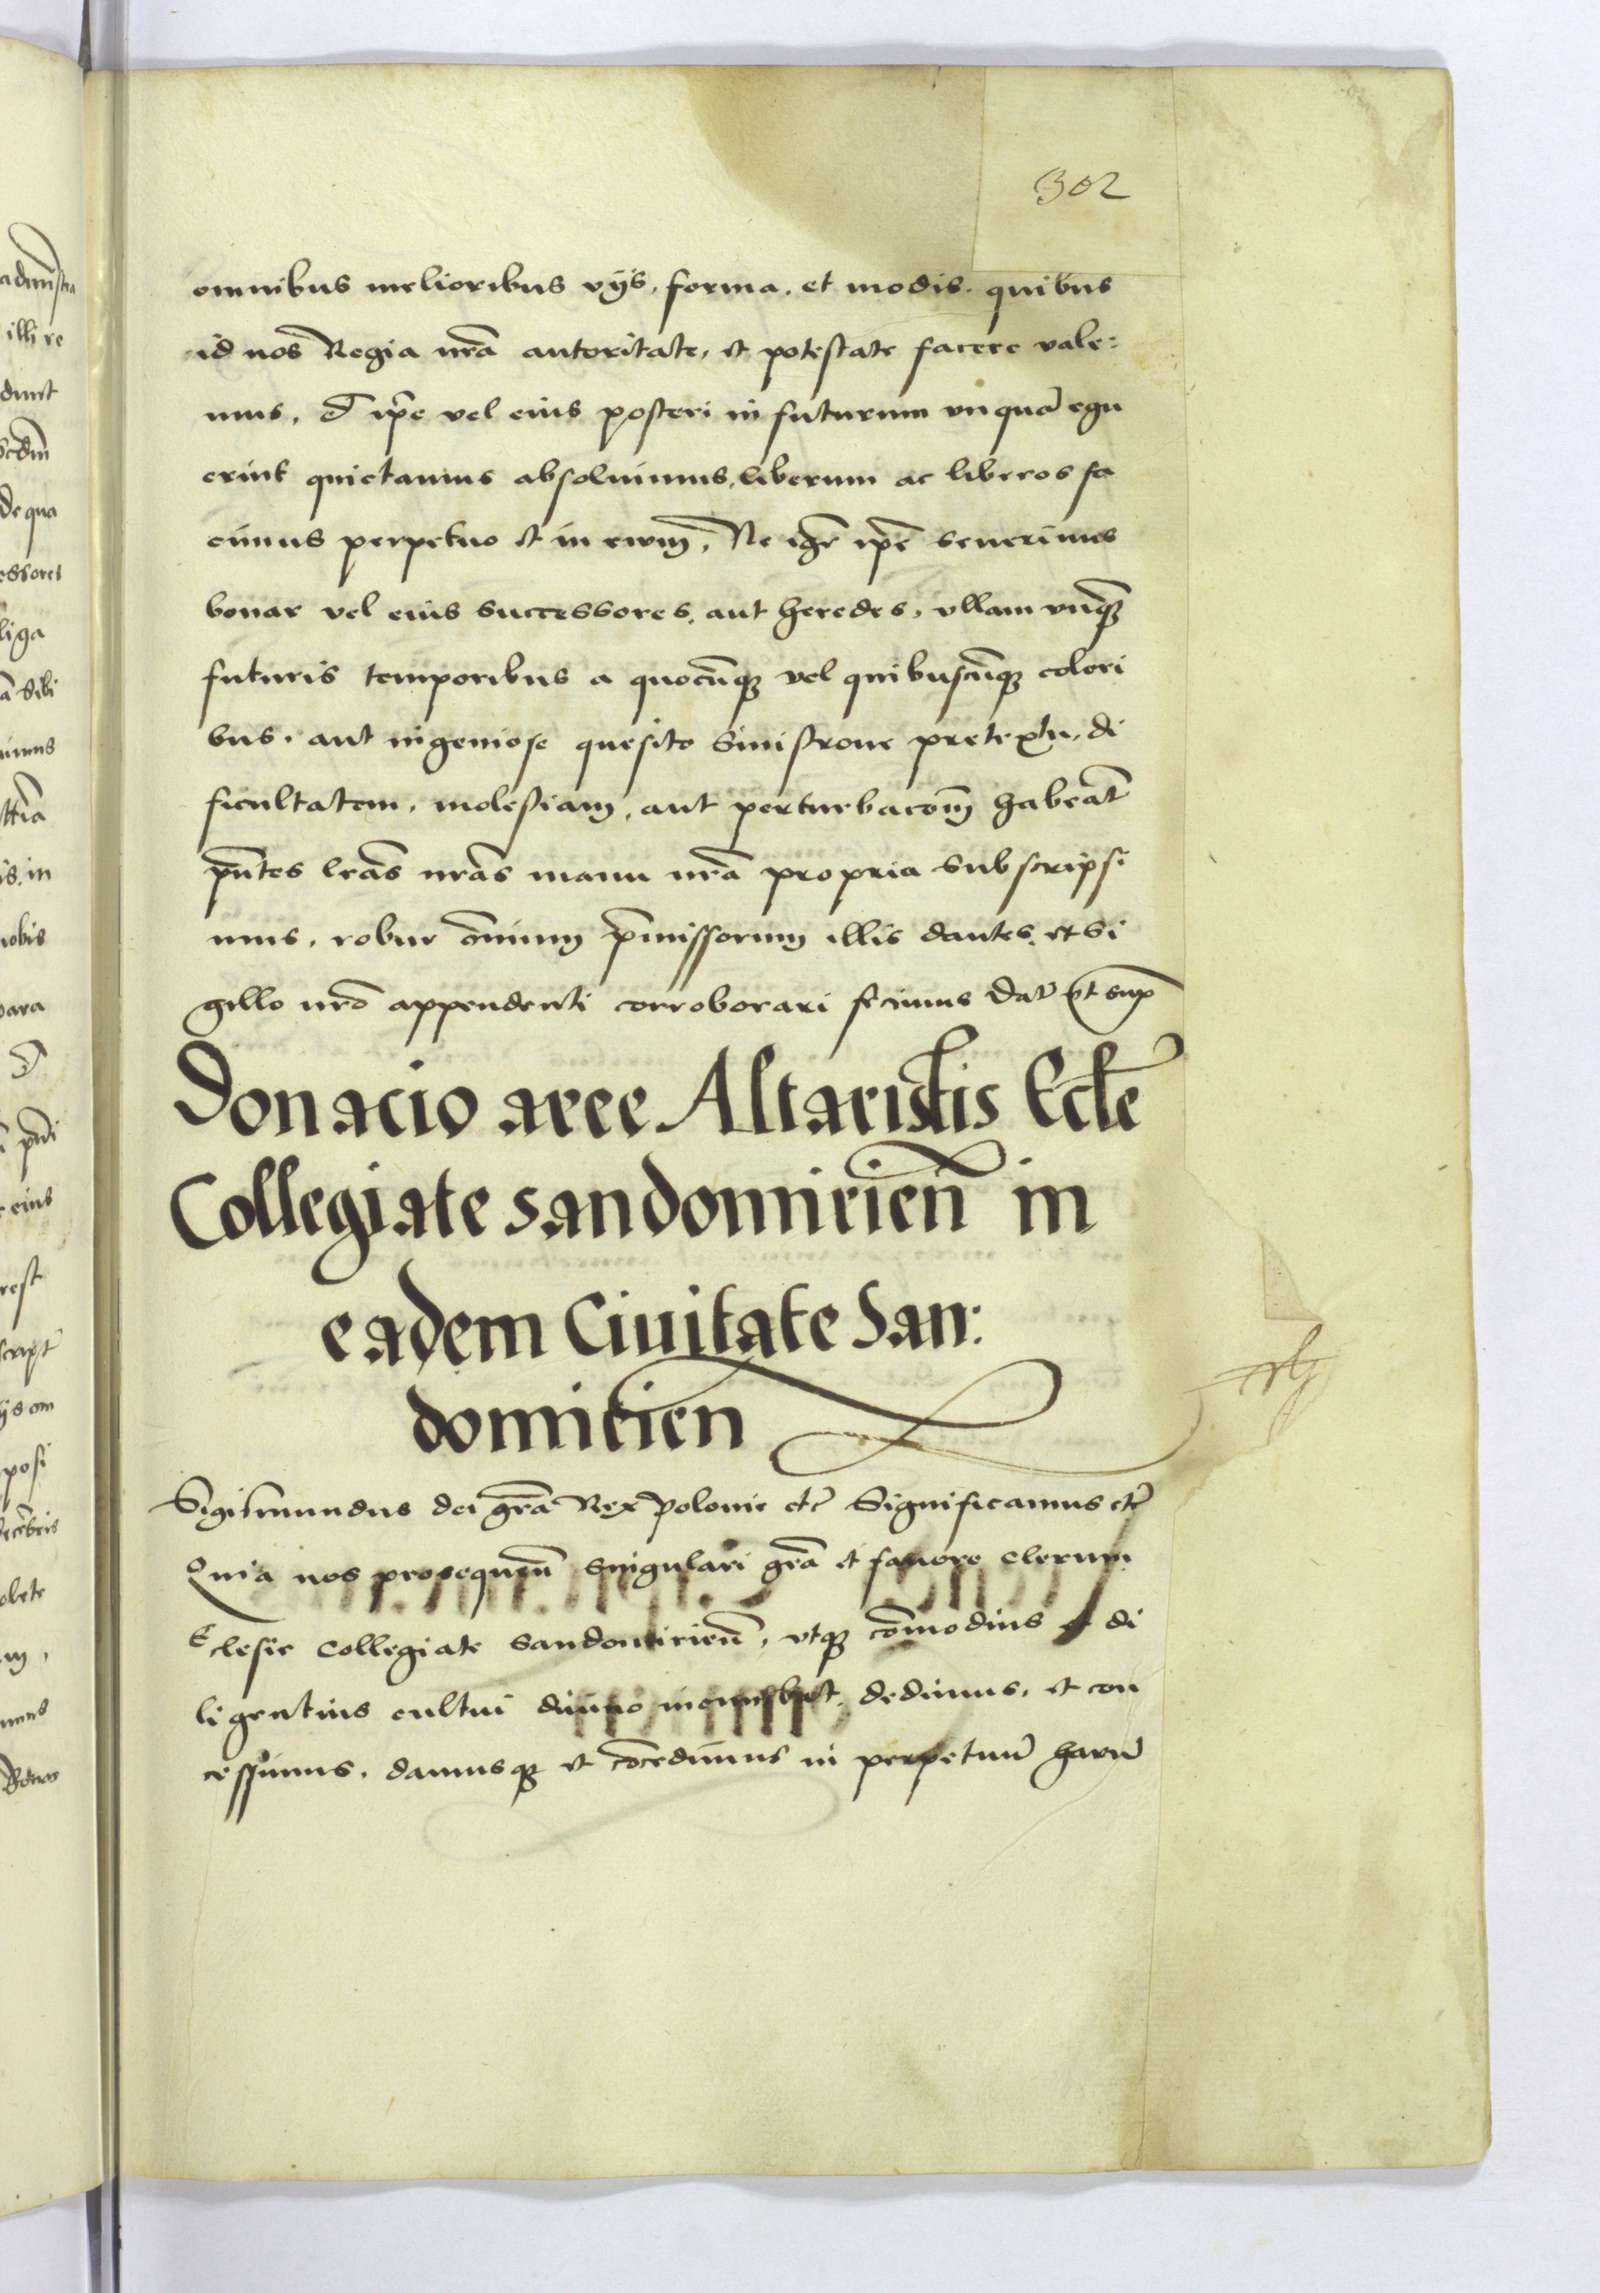 302
omnibus melioribus vijs, forma, et modis. quibus
id nos Regia nrã autoritate, et potestate facere vale:
mus, Et ip̃e vel eius posteri in futurum vnquã egu
erint quietamus absoluimus, liberum ac liberos fa
cimus perpetuo et in ewm̃, Ne igr̃ ip̃e seuerinus
bonar vel eius successores, aut heredes, vllam vnq̃
futuris temporibus a quocũq vel quibuscũq colori
bus, aut ingeniose quesito sinistroue pretextu, di
ficultatem, molestiam, aut perturbacom̃ habeãt
pñtes lrãs nrãs manu nrã propria subscripsi
mus, robur om̃nium p̃missorum illis dantes, et si
gillo nrõ appendenti corroborari fecimus Dat̃ vt sup̃
Donacio aree Altaristis Eccl̃e
Collegiate sandomirieñ in
eadem Ciuitate San:
domirien
Sigismundus dei grã Rex Polonie etc̃ Significamus etc̃
Quia nos prosequẽn singulari grã et fauore clerum
Eclesie Collegiate Sandomirieñ, vtq cõmodius et di
ligentius cultui diuino incumbat, dedimus, et con
cessimus, damusq et cõcedimus in perpetuũ harũ